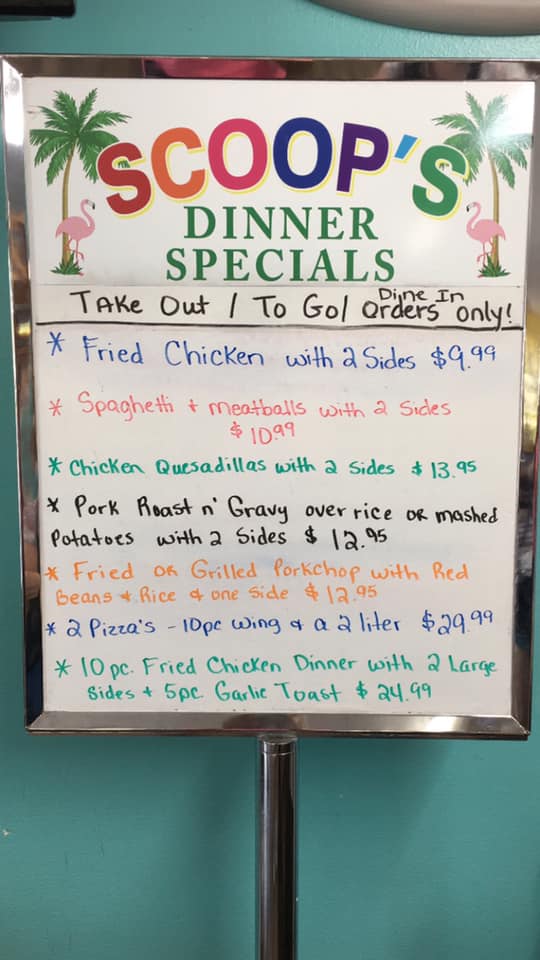 SCOOP'S
DINNER
SPECIALS
Take Out / To Go/ Dine In
Orders only!
* Fried Chicken with 2 Sides $9.99
* Spaghetti + meatballs with 2 Sides
$10.99
* Chicken Quesadillas with 2 Sides $13.95
* Pork Roast n' Gravy over rice OR mashed
Potatoes with 2 Sides $12.95
* Fried OR Grilled Porkchop with Red
Beans & Rice & one Side $12.95
* 2 Pizza's - 10pc Wing & a 2 liter $29.99
* 10 pc. Fried Chicken Dinner with 2 Large
Sides + 5pc. Garlic Toast $24.99